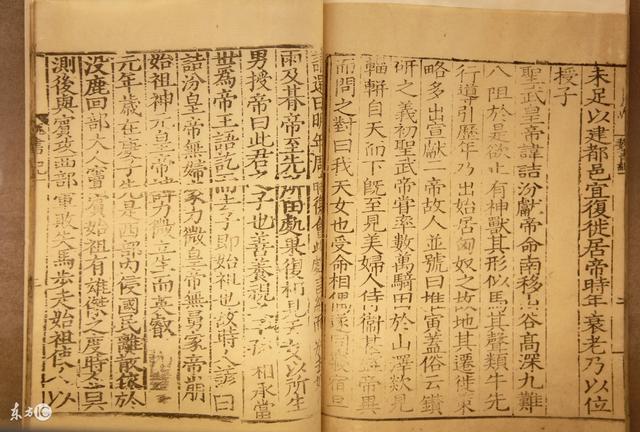 未足以建都邑宜復徙居帝時年衰老乃以位
授子
聖武皇帝諱詰汾獻帝命南移山谷高深九難
八阻於是欲止有神獸其形似馬其聲類牛先
行導引歷年乃出始居匈奴之故地其遷徙策
略多出宣獻二帝故人並號曰推寅蓋俗云鑽
研之義初聖武帝嘗率數萬騎田於山澤欻見
輜軿自天而下既至見美婦人侍衛甚盛帝異
而問之對曰我天女也受命相偶遂同寢宿旦
請還曰明年周時復會此處言終而別去如風
雨及朞帝至先所田處果復相見天女以所生
男授帝曰此君之子也善養視之子孫相承當
世為帝王語訖而去子即始祖也故時人諺曰
詰汾皇帝無婦家力微皇帝無舅家帝崩
始祖神元皇帝諱力微立生而英叡
元年歲在庚子先是西部內侵國民離散依於
沒鹿回部大人竇賓始祖有雄傑之度時人莫
測後與竇賓攻西部軍敗失馬步走始祖使人以
魏書紀一
東方IC